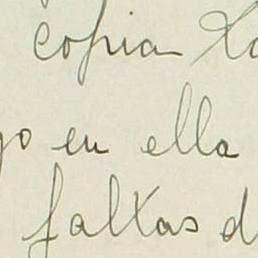 copian
en ella
faltas d